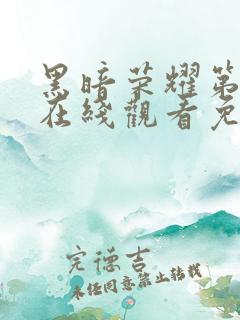 黑暗荣耀第
在线觀看免
完德吉
未经同意禁止转载